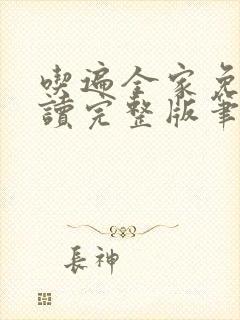 喫遍全家免
讀完整版筆
長神